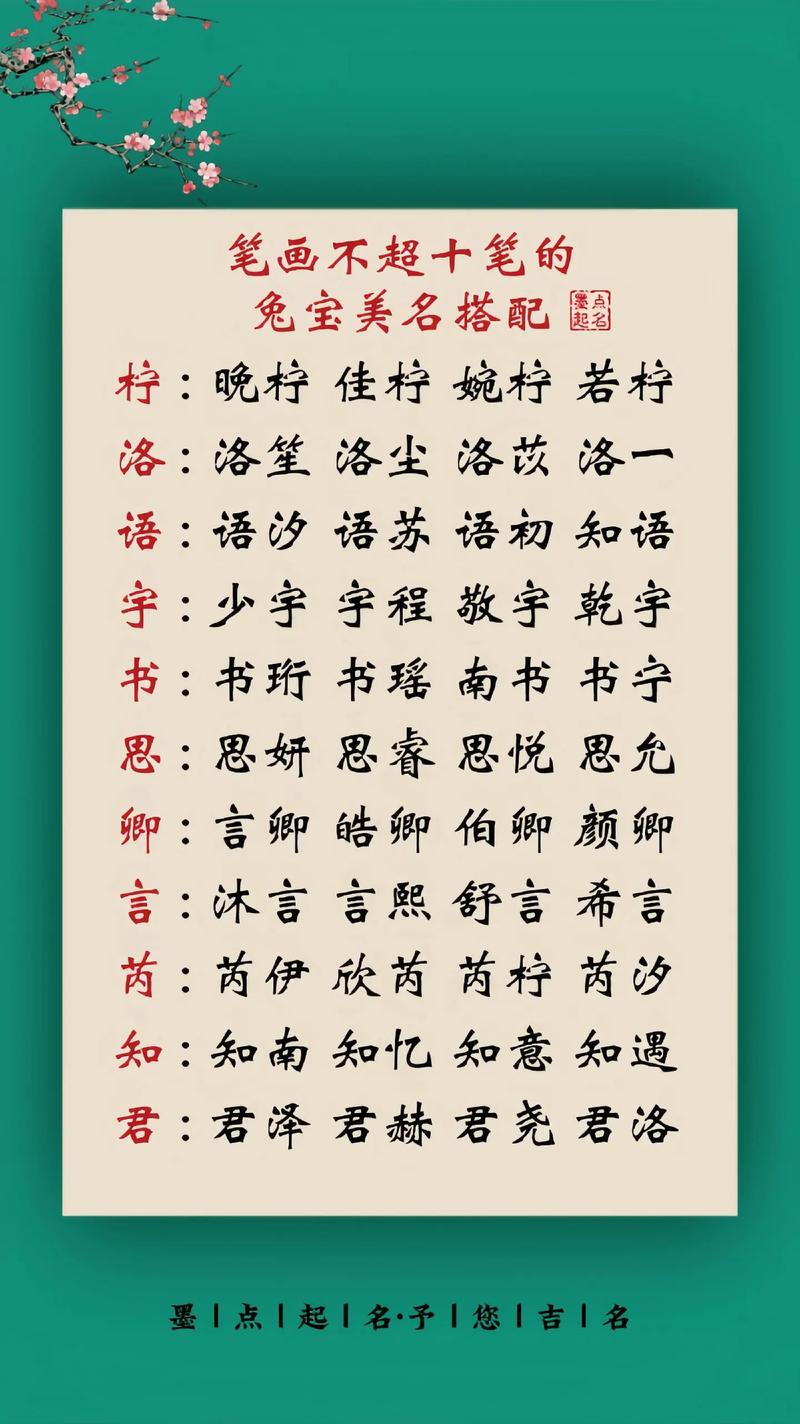 笔画不超十笔的
兔宝美名搭配
墨点起名
柠：晚柠 佳柠 婉柠 若柠
洛：洛笙 洛尘 洛苡 洛一
语：语汐 语苏 语初 知语
宇：少宇 宇程 敬宇 乾宇
书：书珩 书瑶 南书 书宁
思：思妍 思睿 思悦 思允
卿：言卿 皓卿 伯卿 颜卿
言：沐言 言熙 舒言 希言
芮：芮伊 欣芮 芮柠 芮汐
知：知南 知忆 知意 知遇
君：君泽 君赫 君尧 君洛
墨|点|起|名·予|您|吉|名